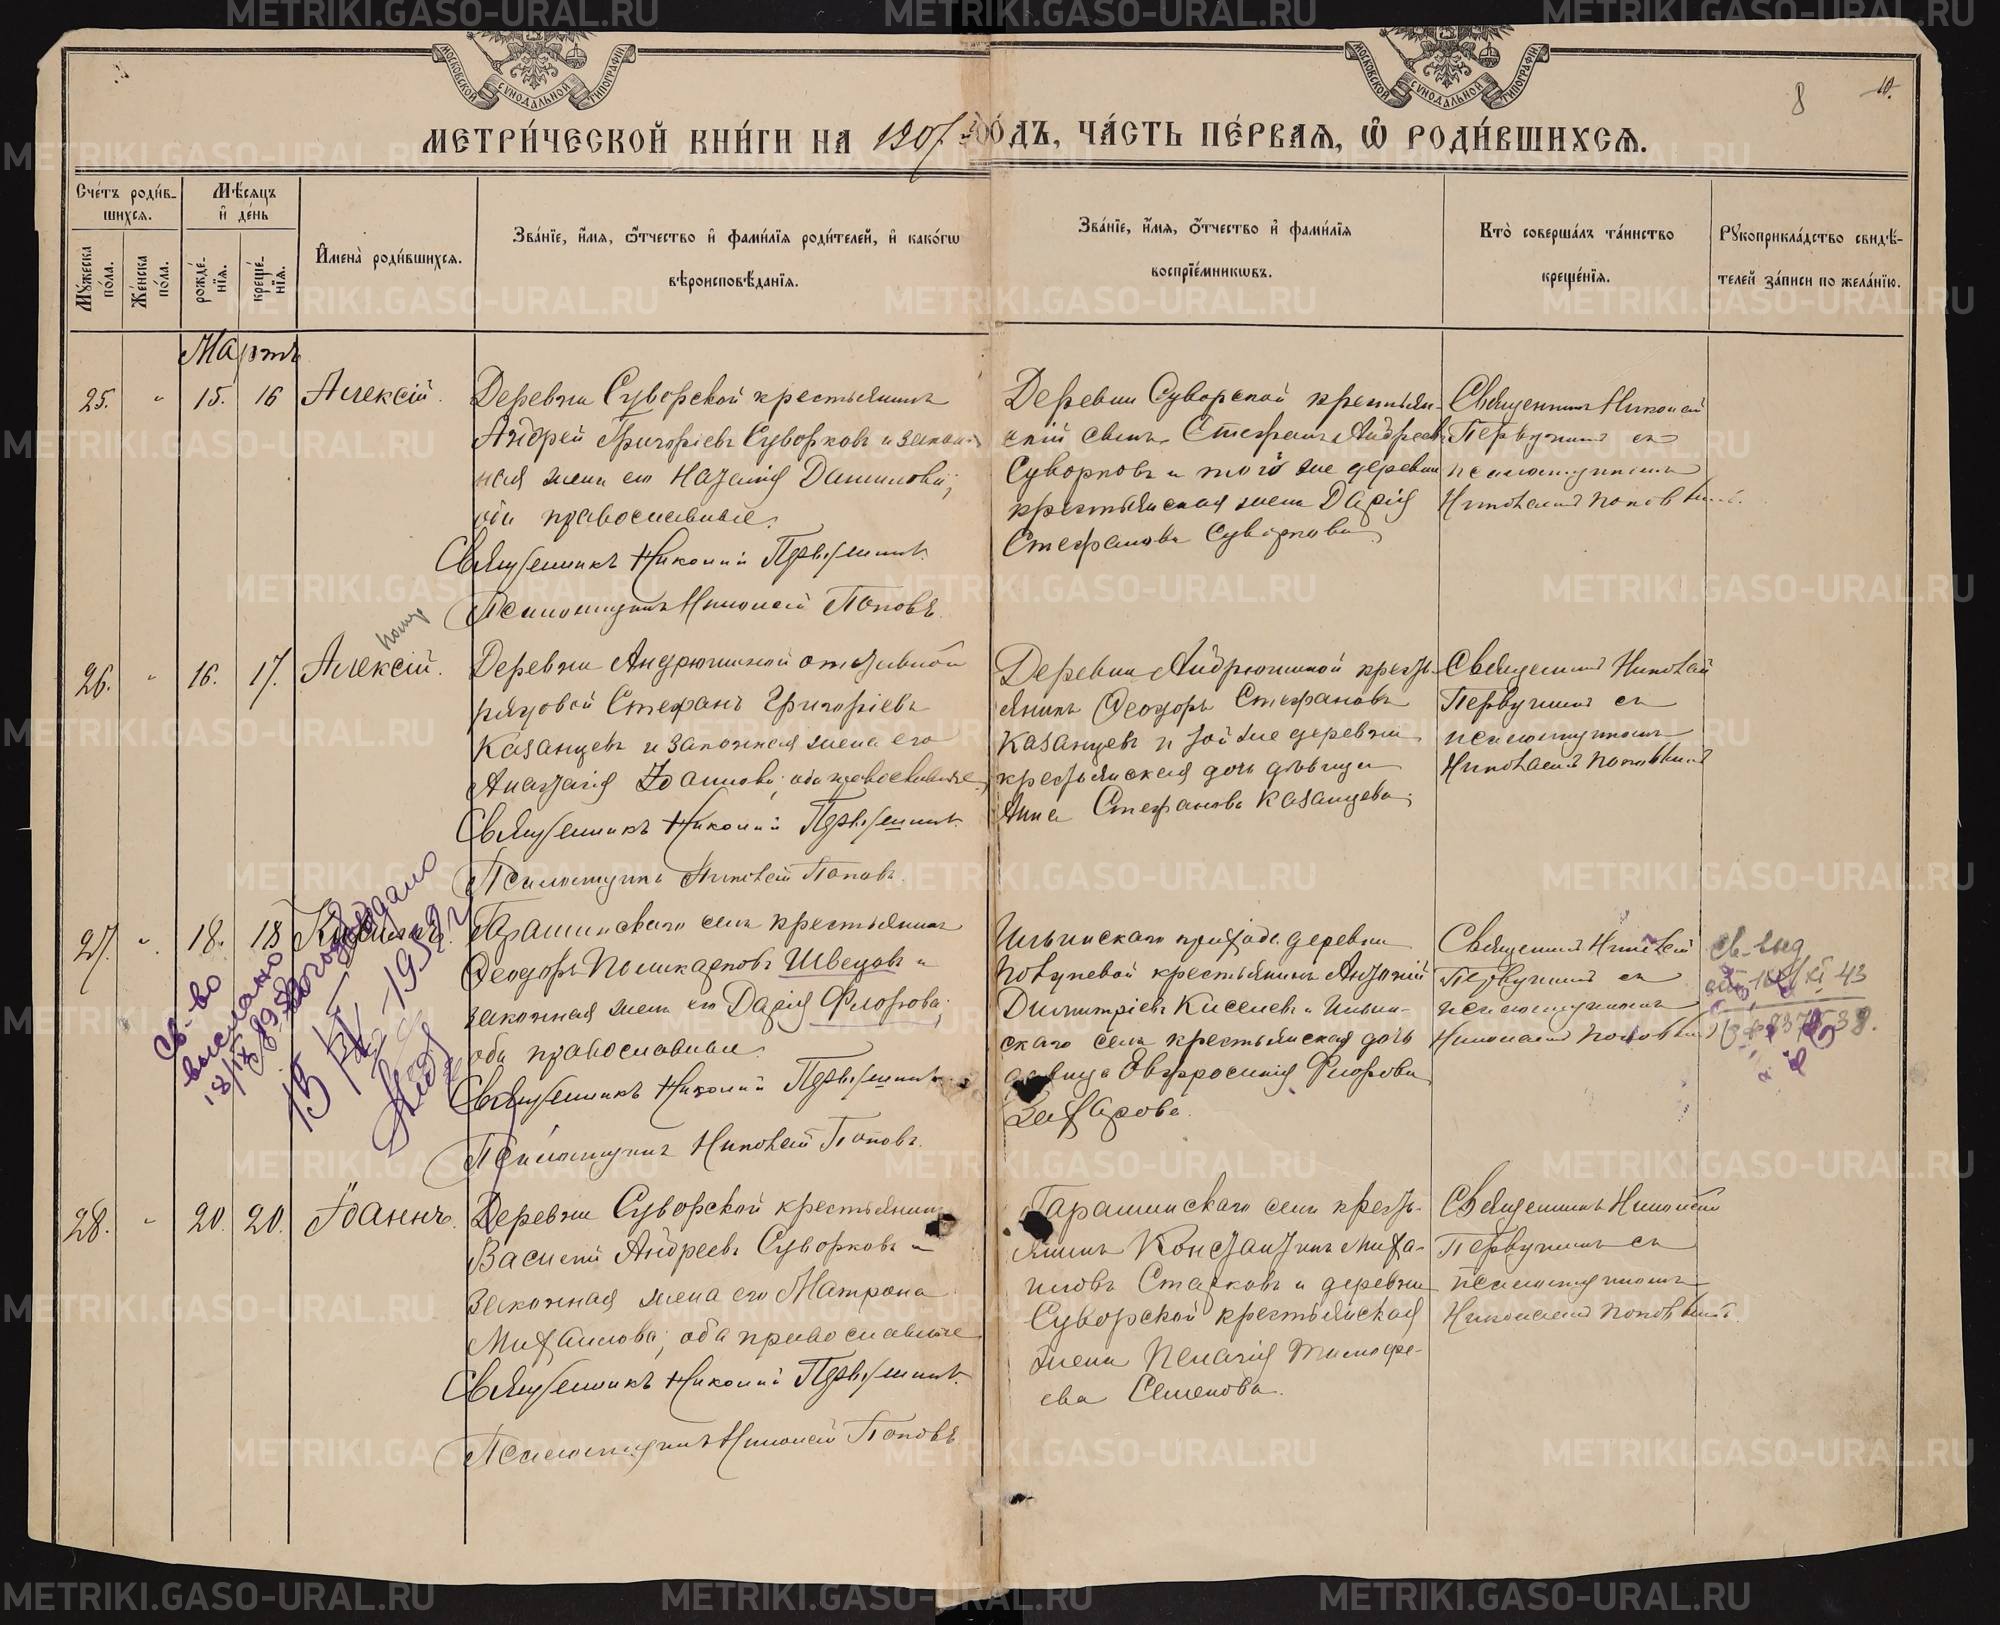 МОСКОВСКОЙ СѴНОДАЛЬНОЙ ТИПОГРАФІИ
МОСКОВСКОЙ СѴНОДАЛЬНОЙ ТИПОГРАФІИ
8
10.
МЕТРИ́ЧЕСКОЙ КНИ́ГИ НА 1907 ГО́ДЪ, ЧА́СТЬ ПЕ́РВАЯ, Ѿ РОДИ́ВШИХСЯ.
Сче́тъ роди́в-
шихся.
Мѣсяцъ
и де́нь
Мꙋжеска по́ла.
Же́нска по́ла.
рожде́-
нія.
креще́-
нія.
Имена̀ роди́вшихся.
Зва́ніе, и́мя, ѻ҆́тчество и фами́лія роди́телей, и како́гѡ
вѣроисповѣ́данія.
Зва́ніе, и́мя, ѻ҆́тчество и фами́лія
воспріе́мникѡвъ.
Кто̀ соверша́лъ та́инство
креще́нія.
Рꙋкоприкла́дство свидѣ́-
телей за́писи по жела́нію.
Мартъ
25. " 15. 16 Алексій.
Деревни Суворской крестьянинъ
Андрей Григоріевъ Суворковъ и закон-
ная жена его Наталія Даниилова;
оба православные.
Священникъ Николай Первушинъ.
Псаломщикъ Николай Поповъ.
Деревни Суворской крестьян-
скій сынъ Стефанъ Андреевъ
Суворковъ и той же деревни
крестьянская жена Дарія
Стефанова Суворкова.
Священникъ Николай
Первушинъ съ
псаломщикомъ
Николаемъ Поповымъ.
26. " 16. 17. Алексій.
Деревни Андрюшиной отставной
рядовой Стефанъ Григоріевъ
Казанцевъ и законная жена его
Анастасія Іоаннова; оба православные.
Священникъ Николай Первушинъ.
Псаломщикъ Николай Поповъ.
Деревни Андрюшиной кресть-
янинъ Ѳеодоръ Стефановъ
Казанцевъ и той же деревни
крестьянская дочь дѣвица
Анна Стефанова Казанцева.
Священникъ Николай
Первушинъ съ
псаломщикомъ
Николаемъ Поповымъ
27. " 18. 18
Гарашинскаго села крестьянинъ
Ѳеодоръ Поликарповъ Швецовъ и
законная жена его Дарія Флорова;
оба православные.
Священникъ Николай Первушинъ.
Псаломщикъ Николай Поповъ.
Ильинскаго прихода деревни
крестьянинъ Антоній
Димитріевъ Киселевъ и Ильин-
скаго села крестьянская дочь
дѣвица Евфросинія Флорова
Захарова.
Священникъ Николай
Первушинъ съ
псаломщикомъ
Николаемъ Поповымъ
Св-во
выслано
28. " 20. 20. Іоаннъ.
Деревни Суворской крестьянинъ
Василій Андреевъ Суворковъ и
законная жена его Матрона
Михаилова; оба православные.
Священникъ Николай Первушинъ.
Псаломщикъ Николай Поповъ
Гарашинскаго села кресть-
янинъ Константинъ Миха-
иловъ Старковъ и деревни
Суворской крестьянская
жена Пелагія Тимофе-
ева Семенова.
Священникъ Николай
Первушинъ съ
псаломщикомъ
Николаемъ Поповымъ.
METRIKI.GASO-URAL.RU